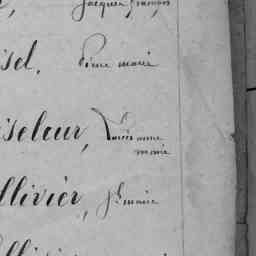 Jacques françois
isel, Pierre marie
iseleur, Louis anne
marie
llivier, Jh marie